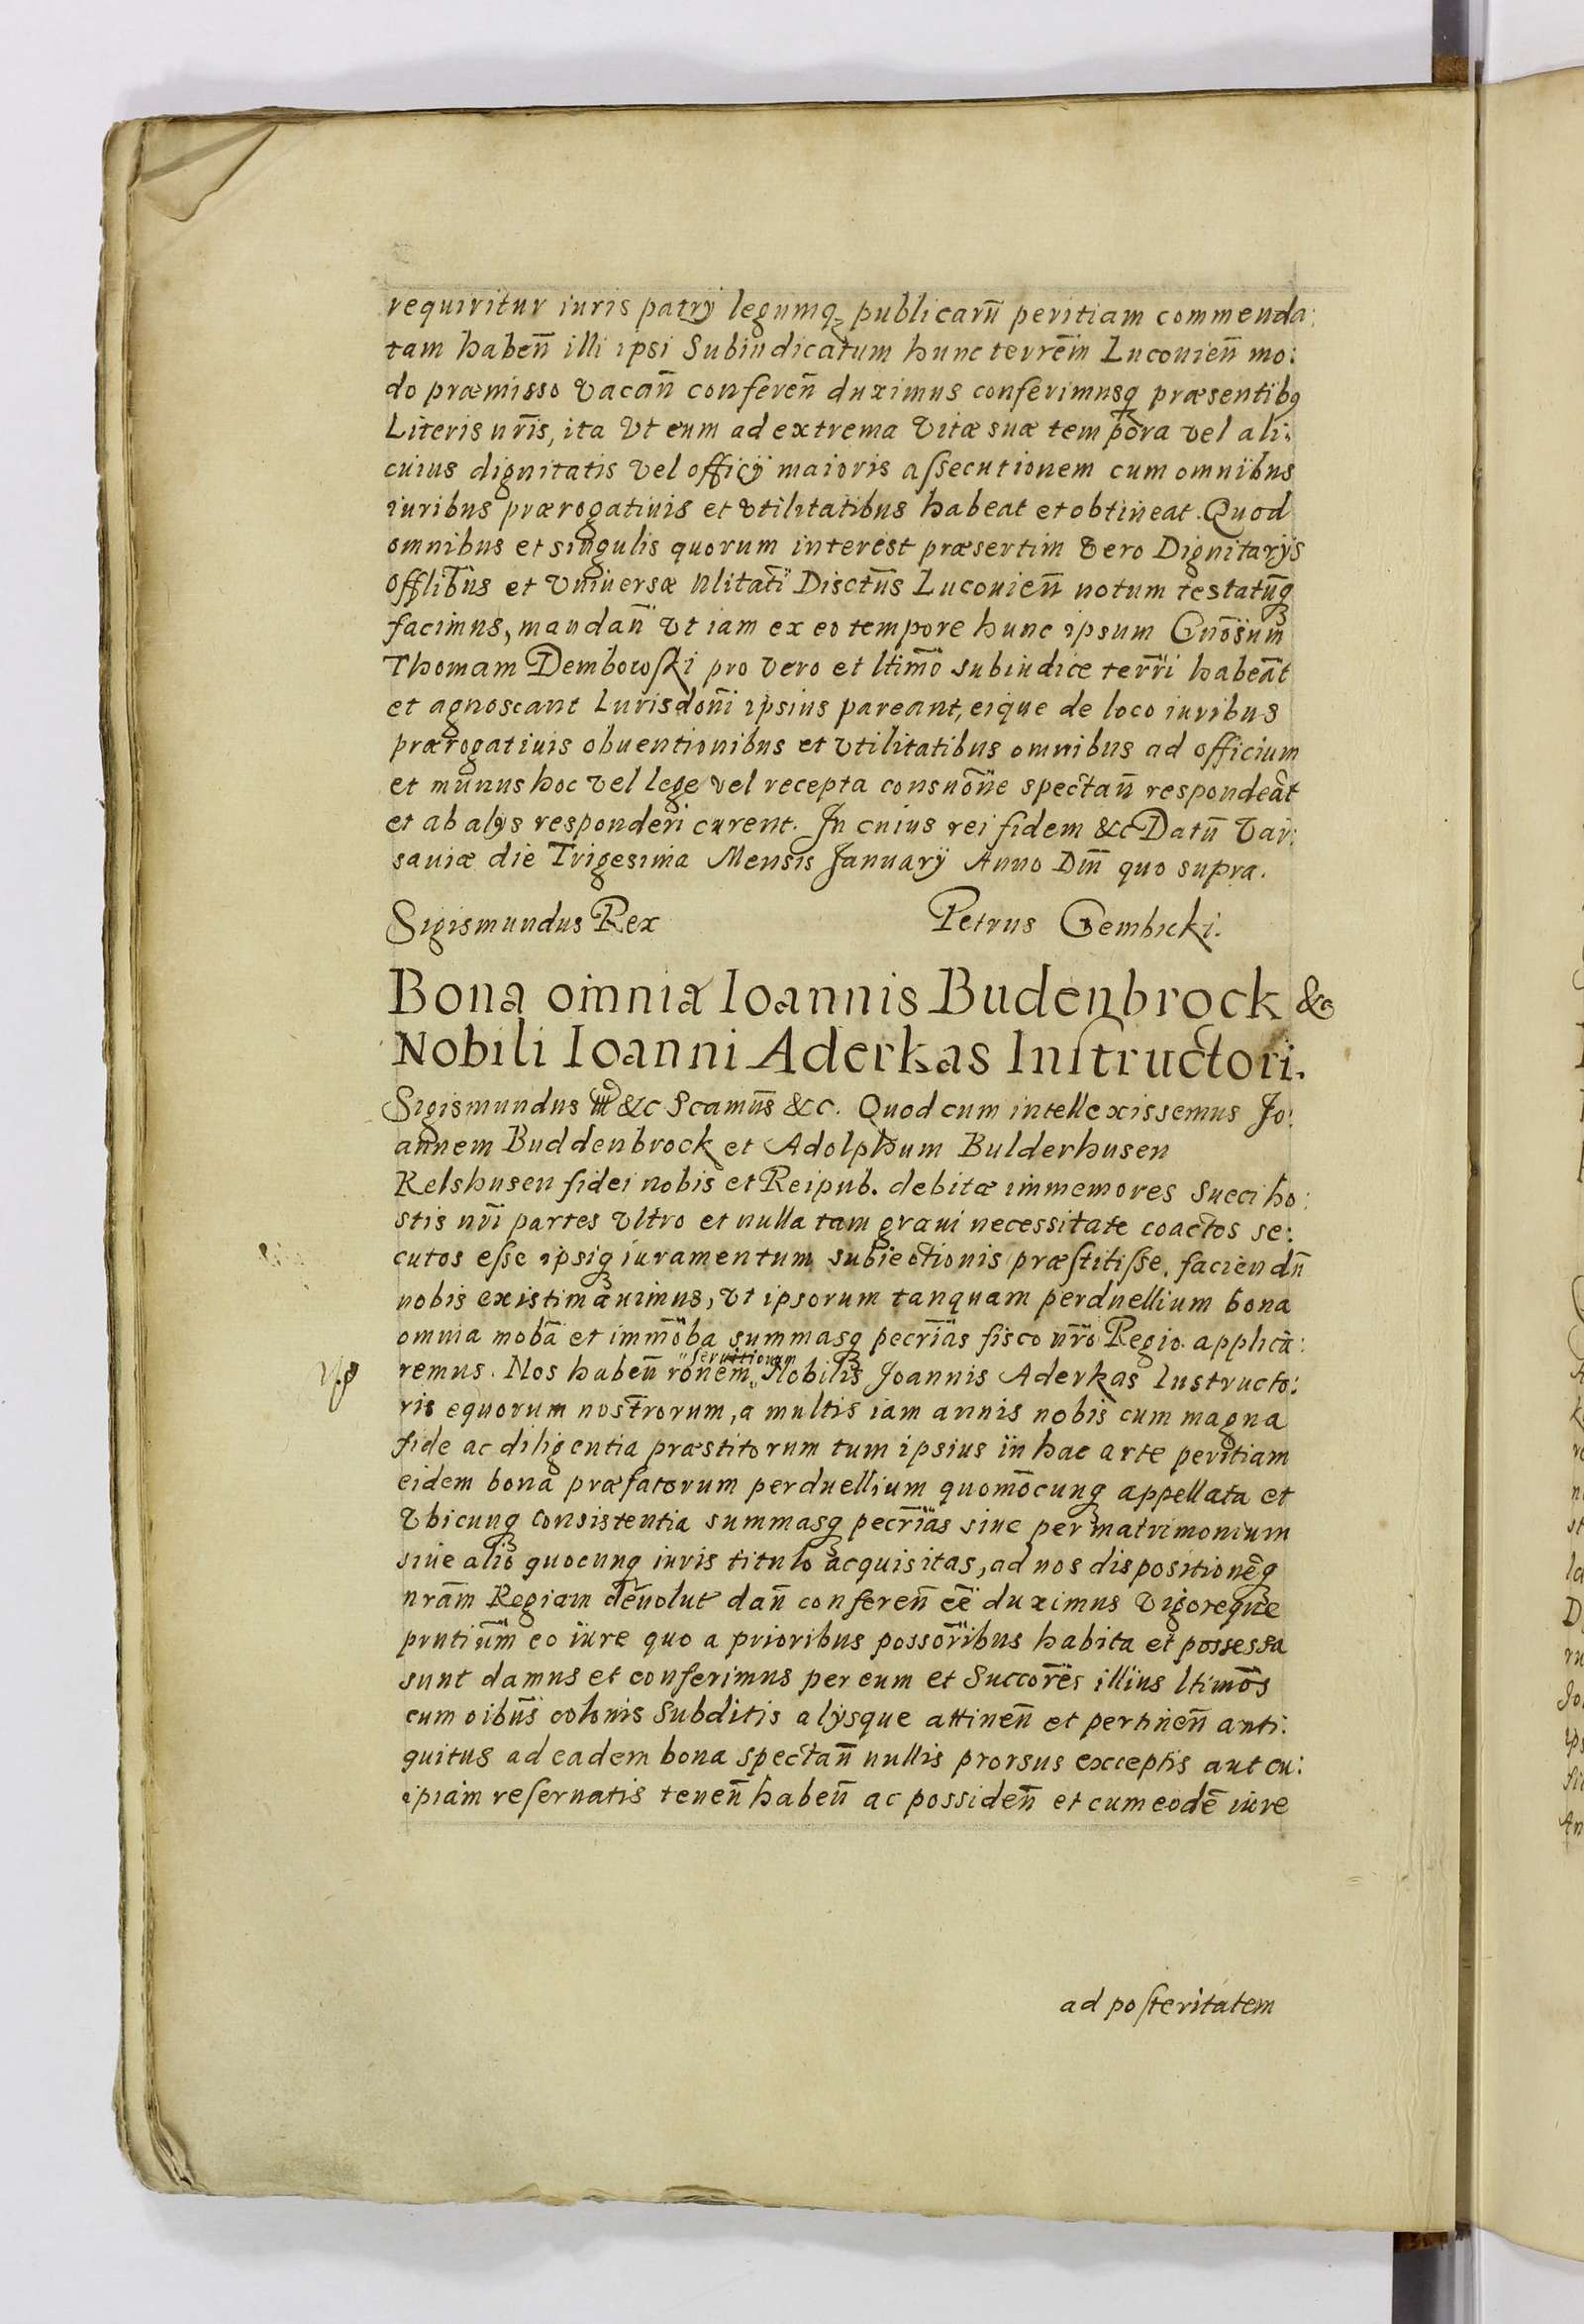 requiritur iuris patrÿ legumqȝ publicarū peritiam commenda:
tam habeñ illi ipsi Subiudicatum hunc terrēm Lucouieñ mo:
do præmisso vacañ confereñ duximus conferimusqȝ præsentibꝯ
Literis nr̄is, ita vt eum ad extrema vitæ suæ tempora vel ali:
cuius dignitatis vel officÿ maioris aſsecutionem cum omnibus
iuribus prærogatiuis et vtilitatibus habeat et obtineat. Quod
omnibus et singulis quorum interest præsertim vero Dignitarÿs
Offlib̄us et vniuersæ Nlitati Disctūs Lucouieñ notum testatūqȝ
facimus, mandañ vt iam ex eo tempore hunc ipsum Gnōsum
Thomam Dembowſki pro vero et ltimō subiudice terr̄i habeāt
et agnoscant Iurisdoñi ipsius pareant, eique de loco iuribus
prærogatiuis obuentionibus et vtilitatibus omnibus ad officium
et munus hoc vel lege vel recepta consuōne spectañ respondeāt
et ab alÿs responderi curent. In cuius rei fidem &c Datū Var:
sauiæ die Trigesima Mensis Januarÿ Anno Dn̄i quo supra.
Sigismundus Rex Petrus Gembicki.
Bona omnia Ioannis Budenbrock &c
Nobili Ioanni Aderkas Inſtructori.
Sigismundus III &c Scamūs &c. Quod cum intellexissemus Jo:
annem Buddenbrock et Adolphum Bulderhusen
Kelshusen fidei nobis et Reipub. debitæ immemores Sueci ho:
stis nr̄i partes vltro et nulla tam graui necessitate coactos se:
cutos eſse ipsiqȝ iuramentum subiectionis præſtitiſse, faciendū
nobis existimauimus, vt ipsorum tanquam perduellium bona
omnia mobā et immōba summasqȝ pecr̄ias fisco nr̄o Regio applica:
seruitiorum
remus. Nos habeñ rōnem Nobilis Joannis Aderkas Instructo:
ris equorum nostrorum, a multis iam annis nobis cum magna
fide ac diligentia præstitorum tum ipsius in hac arte peritiam
eidem bona præfatorum perduellium quomōcunqȝ appellata et
vbicunqȝ consistentia summasqȝ pecr̄ias siue per matrimonium
siue alio quocunqȝ iuris titulo acquisitas, ad nos dispositionēqȝ
nr̄am Regiam deuolut dañ confereñ eē duximus vigoreque
pntiūm eo iure quo a prioribus possor̄ibus habita et possessa
sunt damus et conferimus per eum et Succor̄es illius ltimōs
cum oibūs colonis Subditis alÿsque attineñ et pertineñ anti:
quitus ad eadem bona spectañ nullis prorsus exceptis aut cu:
ipiam reſeruatis teneñ habeñ ac possideñ et cum eodē iure
ad poſteritatem